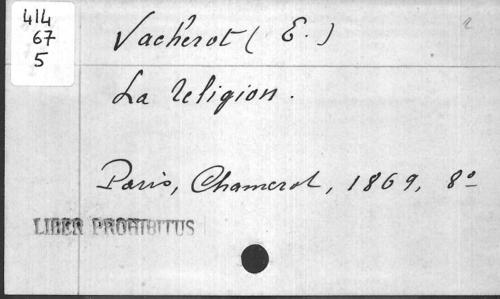 414
67
5
Vachérot (E.)
La religion.
Paris, Chamerot, 1869, 8º
LIBER PROHIBITUS